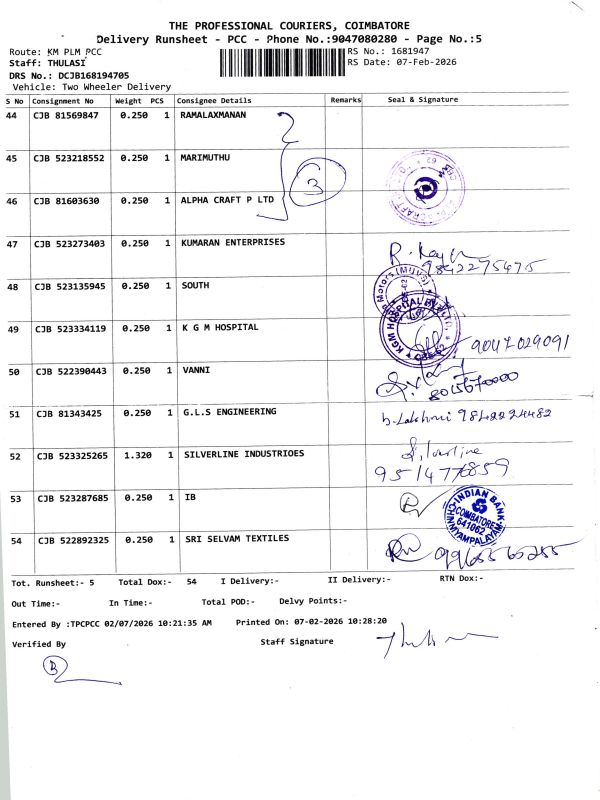 THE PROFESSIONAL COURIERS, COIMBATORE
Delivery Runsheet - PCC - Phone No.:9047080280 - Page No.:5
Route: KM PLM PCC RS No.: 1681947
Staff: THULASI RS Date: 07-Feb-2026
DRS No.: DCJB168194705
Vehicle: Two Wheeler Delivery
S No Consignment No Weight PCS Consignee Details Remarks Seal & Signature
44 CJB 81569847 0.250 1 RAMALAXMANAN
45 CJB 523218552 0.250 1 MARIMUTHU
3
46 CJB 81603630 0.250 1 ALPHA CRAFT P LTD
47 CJB 523273403 0.250 1 KUMARAN ENTERPRISES
9842275475
48 CJB 523135945 0.250 1 SOUTH
Motors (MUV)
49 CJB 523334119 0.250 1 K G M HOSPITAL
KGM HOSPITAL
9047029091
50 CJB 522390443 0.250 1 VANNI
8015670000
51 CJB 81343425 0.250 1 G.L.S ENGINEERING b. Lakshmi 9842224482
52 CJB 523325265 1.320 1 SILVERLINE INDUSTRIOES
9514776859
53 CJB 523287685 0.250 1 IB
INDIAN BANK
COIMBATORE
641062
CHINNIYAMPALAYAM
54 CJB 522892325 0.250 1 SRI SELVAM TEXTILES
Tot. Runsheet:- 5 Total Dox:- 54 I Delivery:- II Delivery:- RTN Dox:-
Out Time:- In Time:- Total POD:- Delvy Points:-
Entered By :TPCPCC 02/07/2026 10:21:35 AM Printed On: 07-02-2026 10:28:20
Verified By Staff Signature